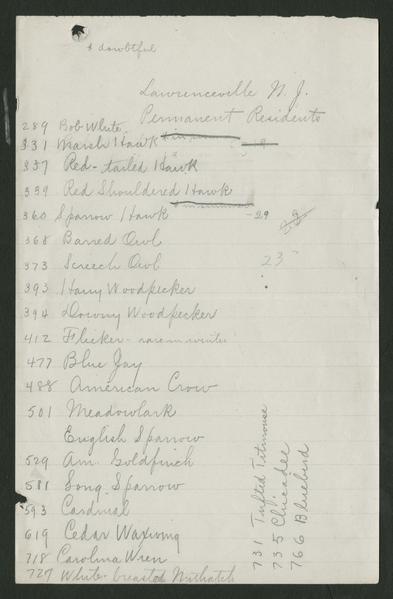 & doubtful
Lawrenceville N. J.
Permanent Residents
289 Bob White
331 Marsh Hawk
337 Red-tailed Hawk
339 Red Shouldered Hawk
360 Sparrow Hawk - 29
368 Barred Owl
373 Screech Owl
23
393 Hairy Woodpecker
394 Downy Woodpecker
412 Flicker - rare in winter
477 Blue Jay
488 American Crow
501 Meadowlark
English Sparrow
529 Am. Goldfinch
581 Song Sparrow
593 Cardinal
619 Cedar Waxwing
718 Carolina Wren
727 White-breasted Nuthatch
731 Tufted Titmouse
735 Chicadee
766 Bluebird